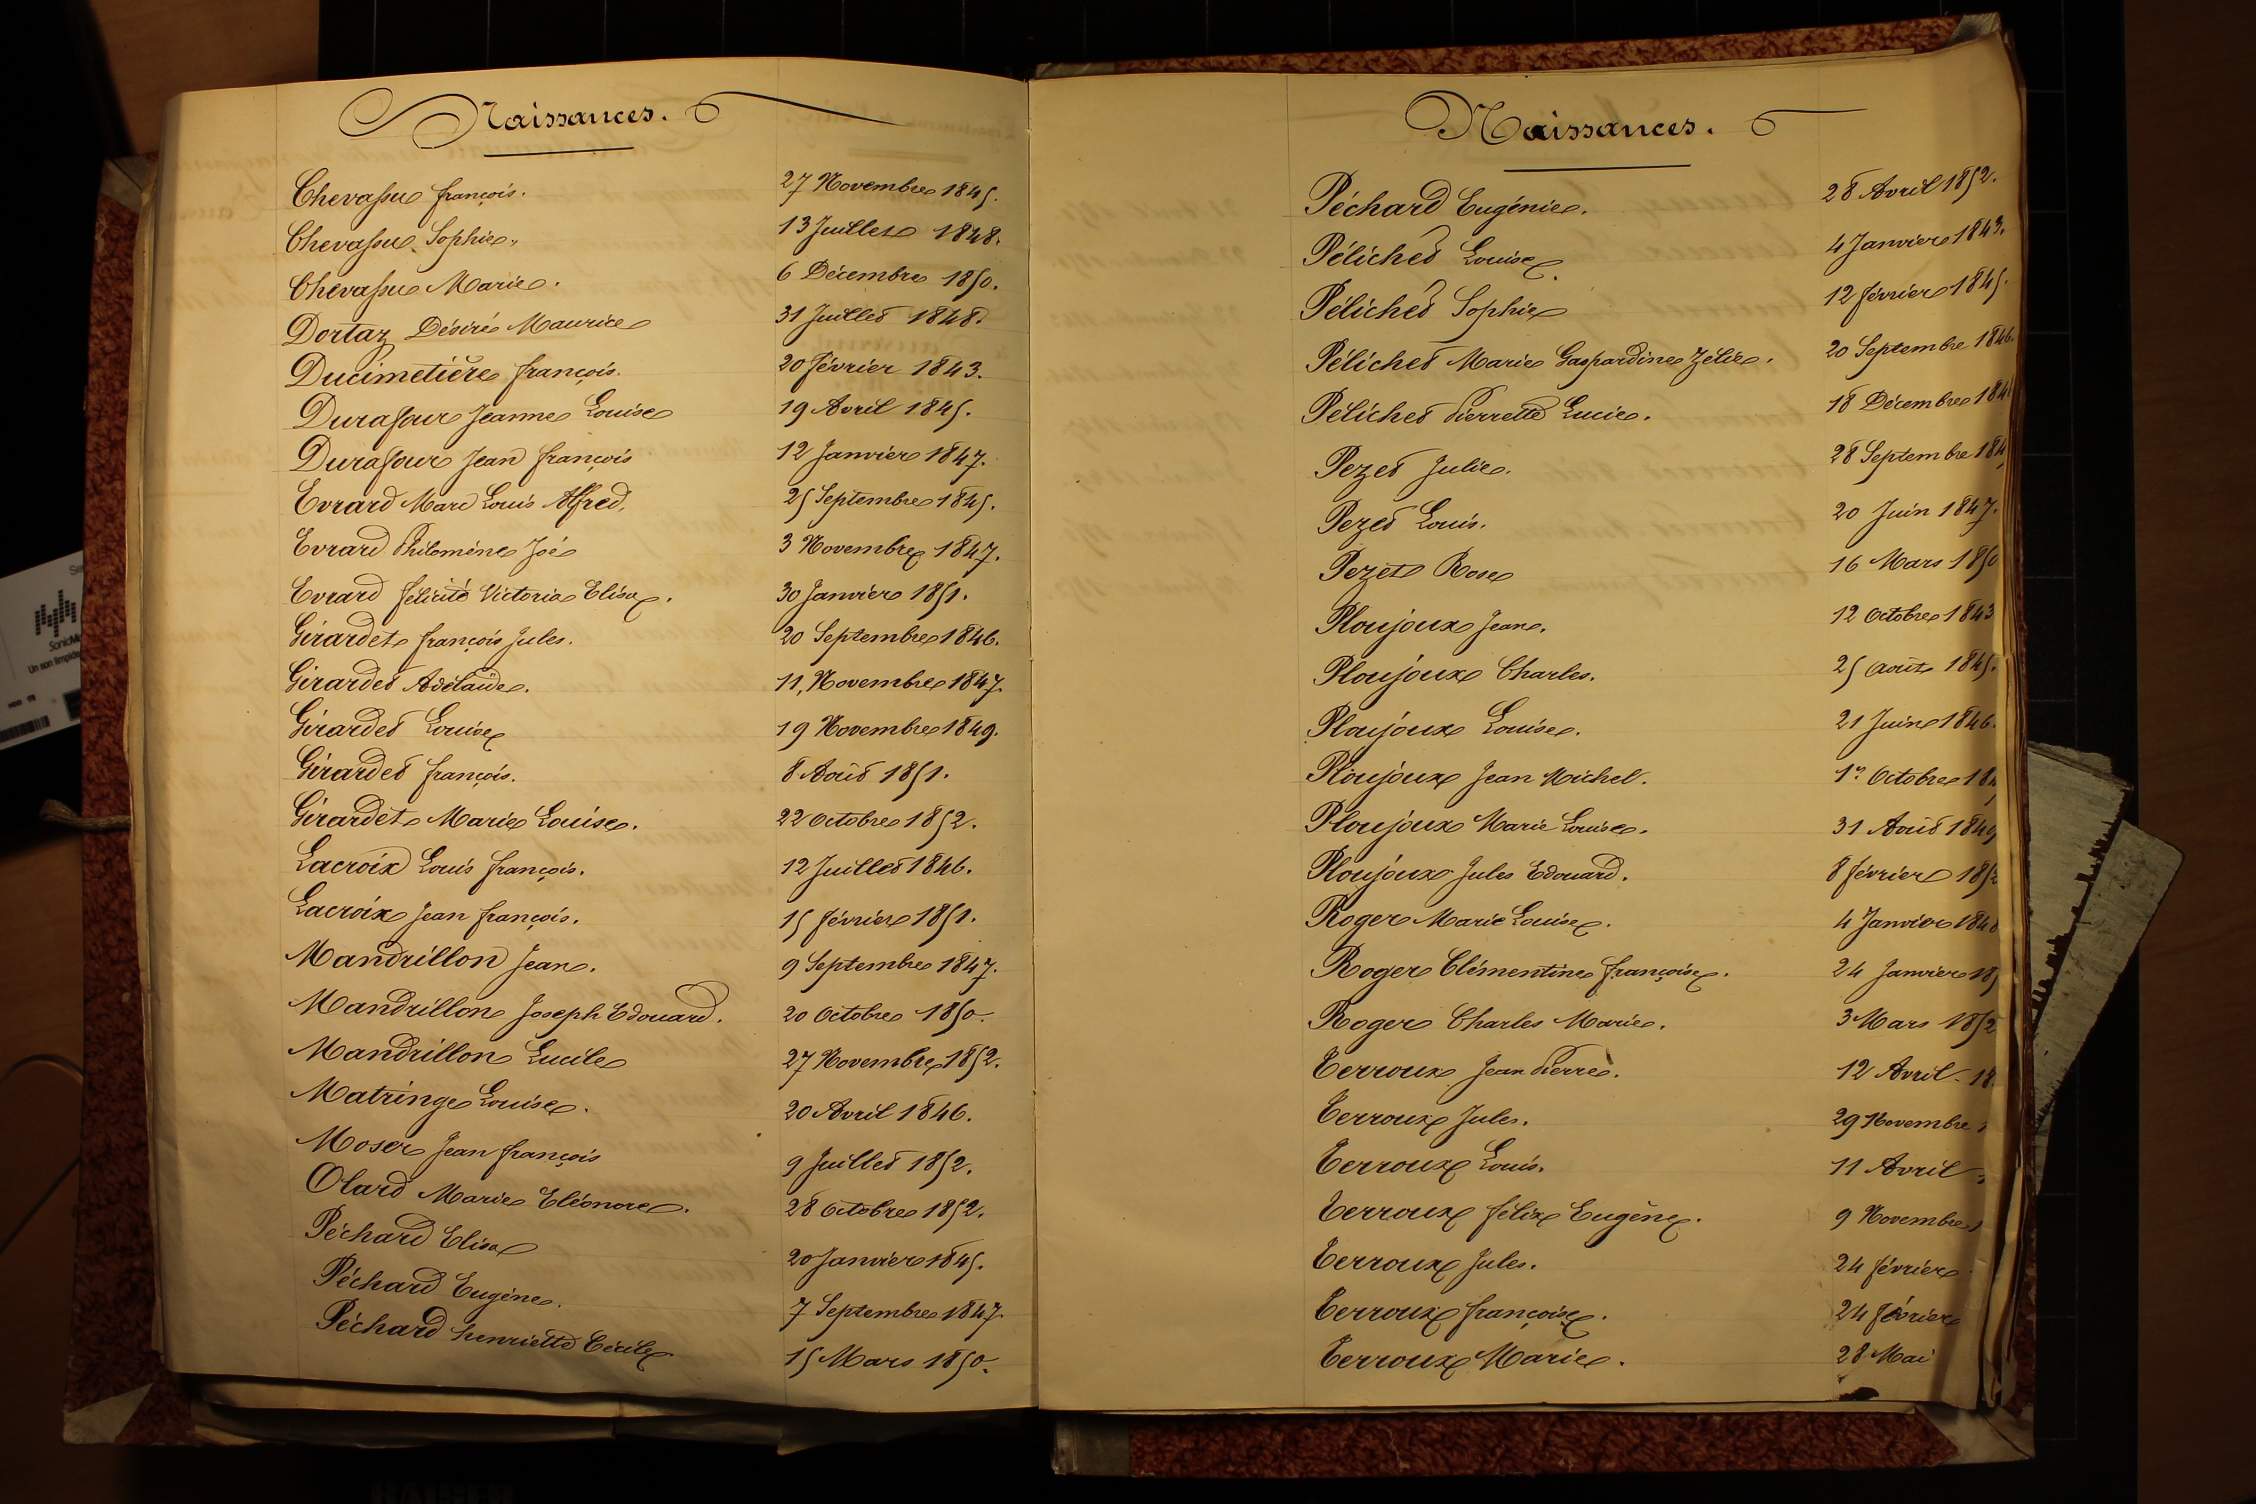 Naissances.
Chevassu françois. 27 Novembre 1845.
Chevassu Sophie. 13 Juillet 1848.
Chevassu Marie. 6 Décembre 1850.
Dortaz Désiré Maurice 31 Juillet 1848.
Ducimetière françois. 20 février 1843.
Durafour Jeanne Louise 19 Avril 1845.
Durafour Jean françois 12 Janvier 1847.
Evrard Marc Louis Alfred. 25 Septembre 1845.
Evrard Philomène Zoé 3 Novembre 1847.
Evrard félicité Victoria Elisa. 30 Janvier 1851.
Girardet françois Jules. 20 Septembre 1846.
Girardet Adélaïde. 11, Novembre 1847.
Girardet Louise 19 Novembre 1849.
Girardet françois. 8 Août 1851.
Girardet Marie Louise. 22 Octobre 1852.
Lacroix Louis françois. 12 Juillet 1846.
Lacroix Jean françois. 15 février 1851.
Mandrillon Jean. 9 Septembre 1847.
Mandrillon Joseph Edouard. 20 Octobre 1850.
Mandrillon Lucile 27 Novembre 1852.
Matringe Louise. 20 Avril 1846.
Moser Jean françois 9 Juillet 1852.
Olard Marie Eléonore. 28 Octobre 1852.
Péchard Elisa 20 Janvier 1845.
Péchard Eugène. 7 Septembre 1847.
Péchard henriette Cécile. 15 Mars 1850.
Naissances.
Péchard Eugénie. 28 Avril 1852.
Pélichet Louise. 4 Janvier 1843.
Pélichet Sophie 12 février 1845.
Pélichet Marie Gaspardine Zélie. 20 Septembre 1846.
Pélichet Pierrette Lucie. 18 Décembre 184
Pezet Julie. 28 Septembre 184
Pezet Louis. 20 Juin 1847.
Pezet Rose 16 Mars 1850
Ploujoux Jean. 12 Octobre 1843
Ploujoux Charles. 25 Août 1845.
Ploujoux Louise. 21 Juin 1846.
Ploujoux Jean Michel. 1er Octobre 184
Ploujoux Marie Louise. 31 Août 1849
Ploujoux Jules Edouard. 8 février 1852
Roger Marie Louise. 4 Janvier 1848
Roger Clémentine françoise. 24 Janvier 185
Roger Charles Marie. 3 Mars 1852
Terroux Jean Pierre. 12 Avril 18
Terroux Jules. 29 Novembre 1
Terroux Louis. 11 Avril
Terroux félix Eugène. 9 Novembre 1
Terroux Jules. 24 février
Terroux françoise. 24 février
Terroux Marie. 28 Mai